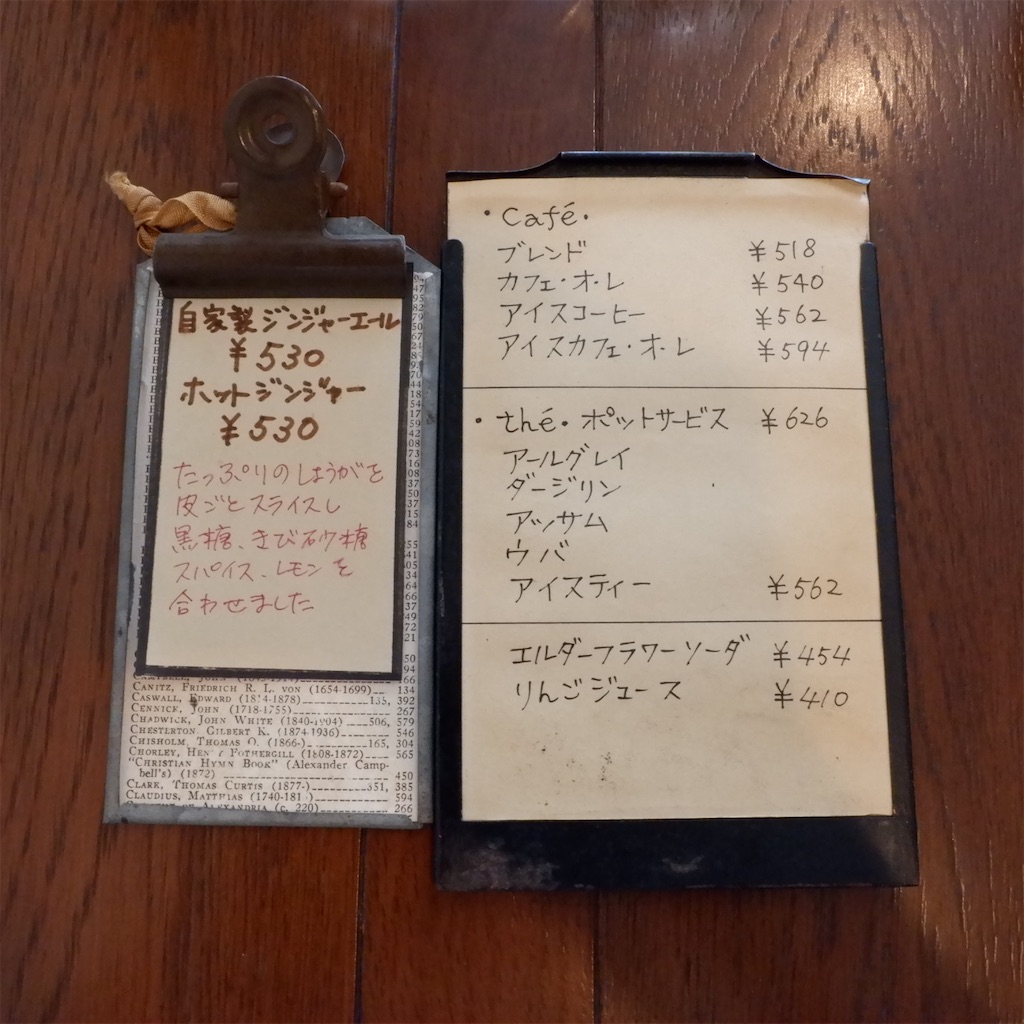 自家製ジンジャーエール
¥530
ホットジンジャー
¥530
たっぷりのしょうがを
皮ごとスライスし
黒糖、きび砂糖
スパイス、レモンを
合わせました
CANITZ, FRIEDRICH R. L. VON (1654-1699) 134
CASWALL, EDWARD (1814-1878) 135, 392
CENNICK, JOHN (1718-1755) 267
CHADWICK, JOHN WHITE (1840-1904) 506, 579
CHESTERTON, GILBERT K. (1874-1936) 546
CHISHOLM, THOMAS O. (1866-) 165, 304
CHORLEY, HENRY FOTHERGILL (1808-1872) 565
"CHRISTIAN HYMN BOOK" (Alexander Camp-
bell's) (1872) 450
CLARK, THOMAS CURTIS (1877-) 351, 385
CLAUDIUS, MATTHIAS (1740-181 594
ALEXANDRIA (c. 220) 266
・Café・
ブレンド ¥518
カフェ・オ・レ ¥540
アイスコーヒー ¥562
アイスカフェ・オ・レ ¥594
・thé・ポットサービス ¥626
アールグレイ
ダージリン
アッサム
ウバ
アイスティー ¥562
エルダーフラワーソーダ ¥454
りんごジュース ¥410